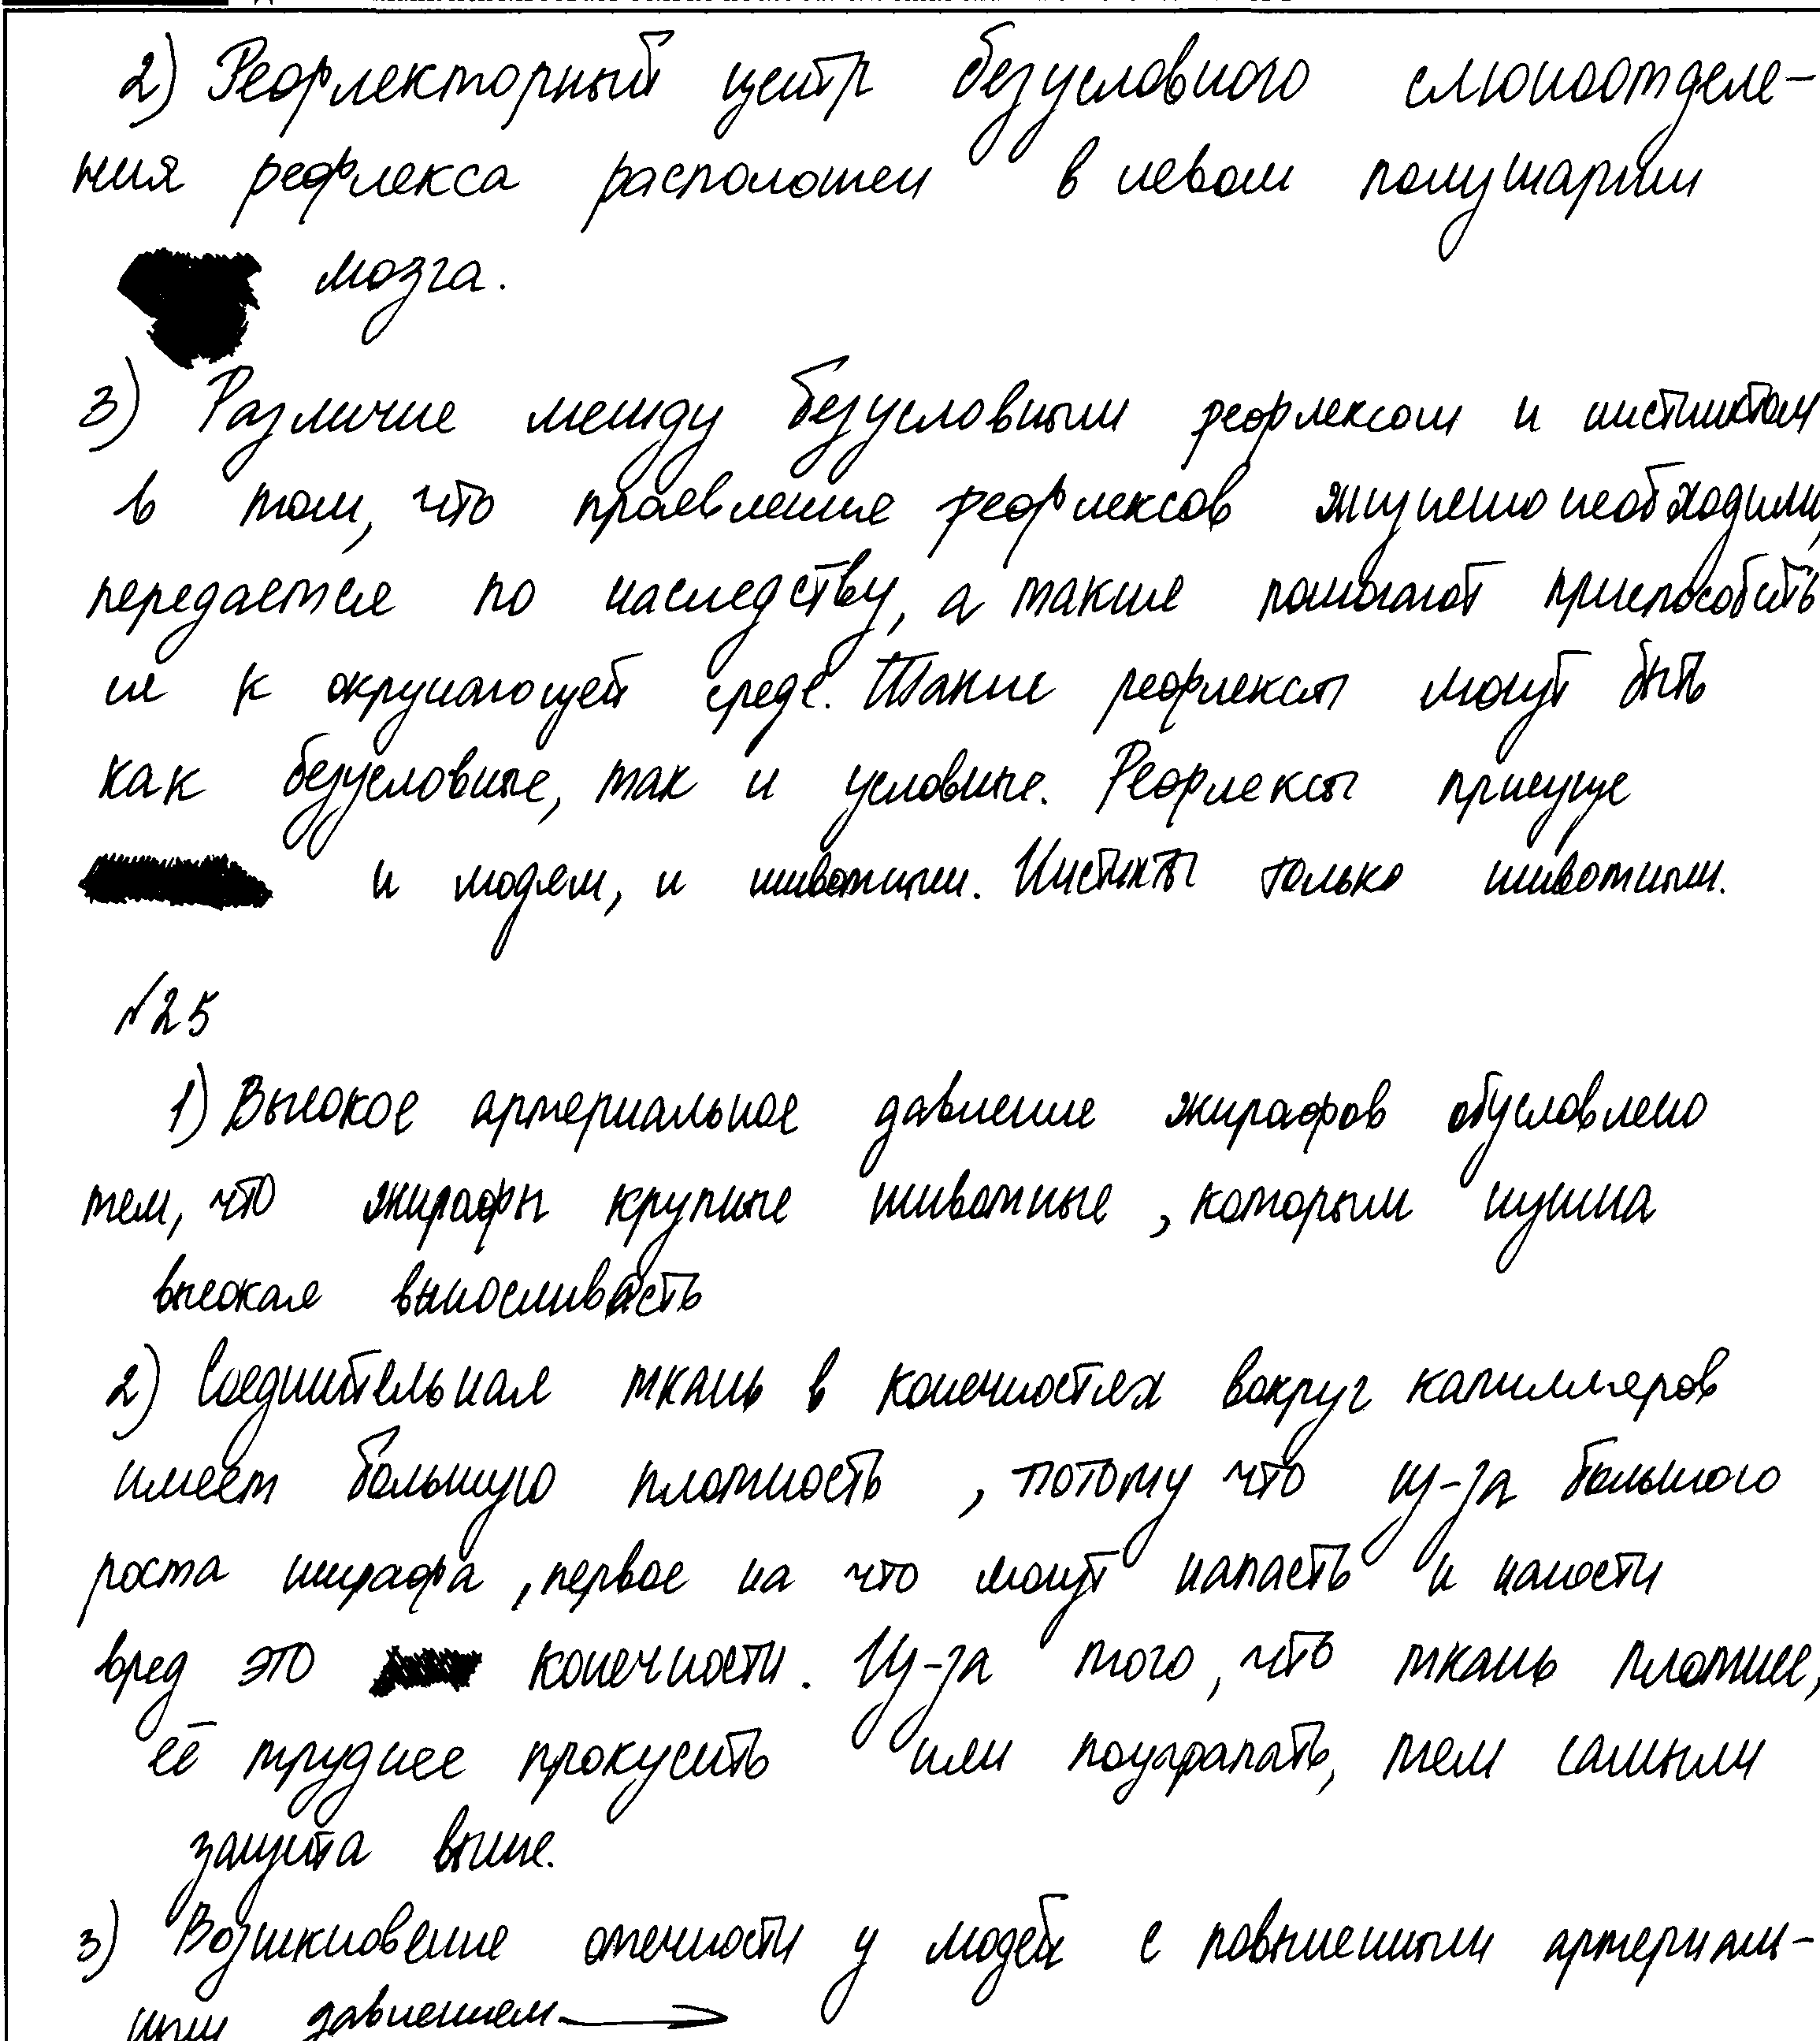 2) Рефлекторный центр безусловного слюноотделе-
ния рефлекса расположен в левом полушарии
мозга.
3) Различие между безусловным рефлексом и инстинктом
в том, что проявление рефлексов жизненно необходимы,
передается по наследству, а также помогают приспособить
ся к окружающей среде. Такие рефлексы могут быть
как безусловные, так и условные. Рефлексы присуще
и людям, и животным. Инстикты только животным.
№25
1) Высокое артериальное давление жирафов обусловлено
тем, что жирафы крупные животные, которым нужна
высокая выносливость
2) Соединительная ткань в конечностях вокруг капилляров
имеет большую плотность, потому что из-за большого
роста жирафа, первое на что могут напасть и нанести
вред это конечности. Из-за того, что ткань плотнее,
её труднее прокусить или поцарапать, тем самым
защита выше.
3) Возникновение отечности у людей с повышенным артериаль-
ным давлением